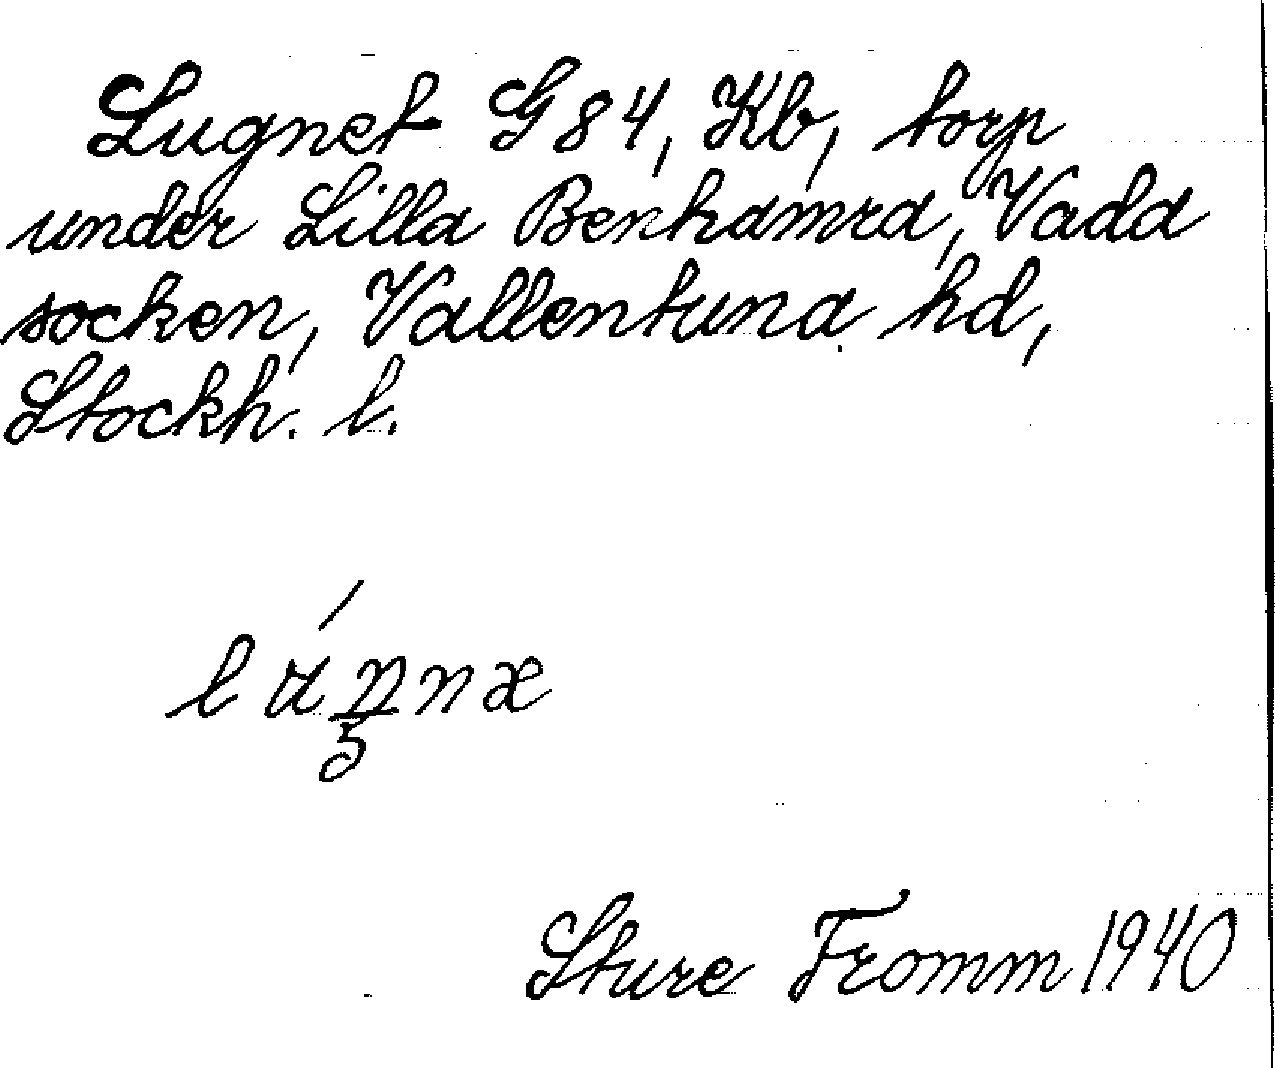 Lugnet G 84, Kb, torp
under Lilla Benhamra, Vada
socken, Vallentuna hd,
Stockh. l.
Sture Fromm 1940